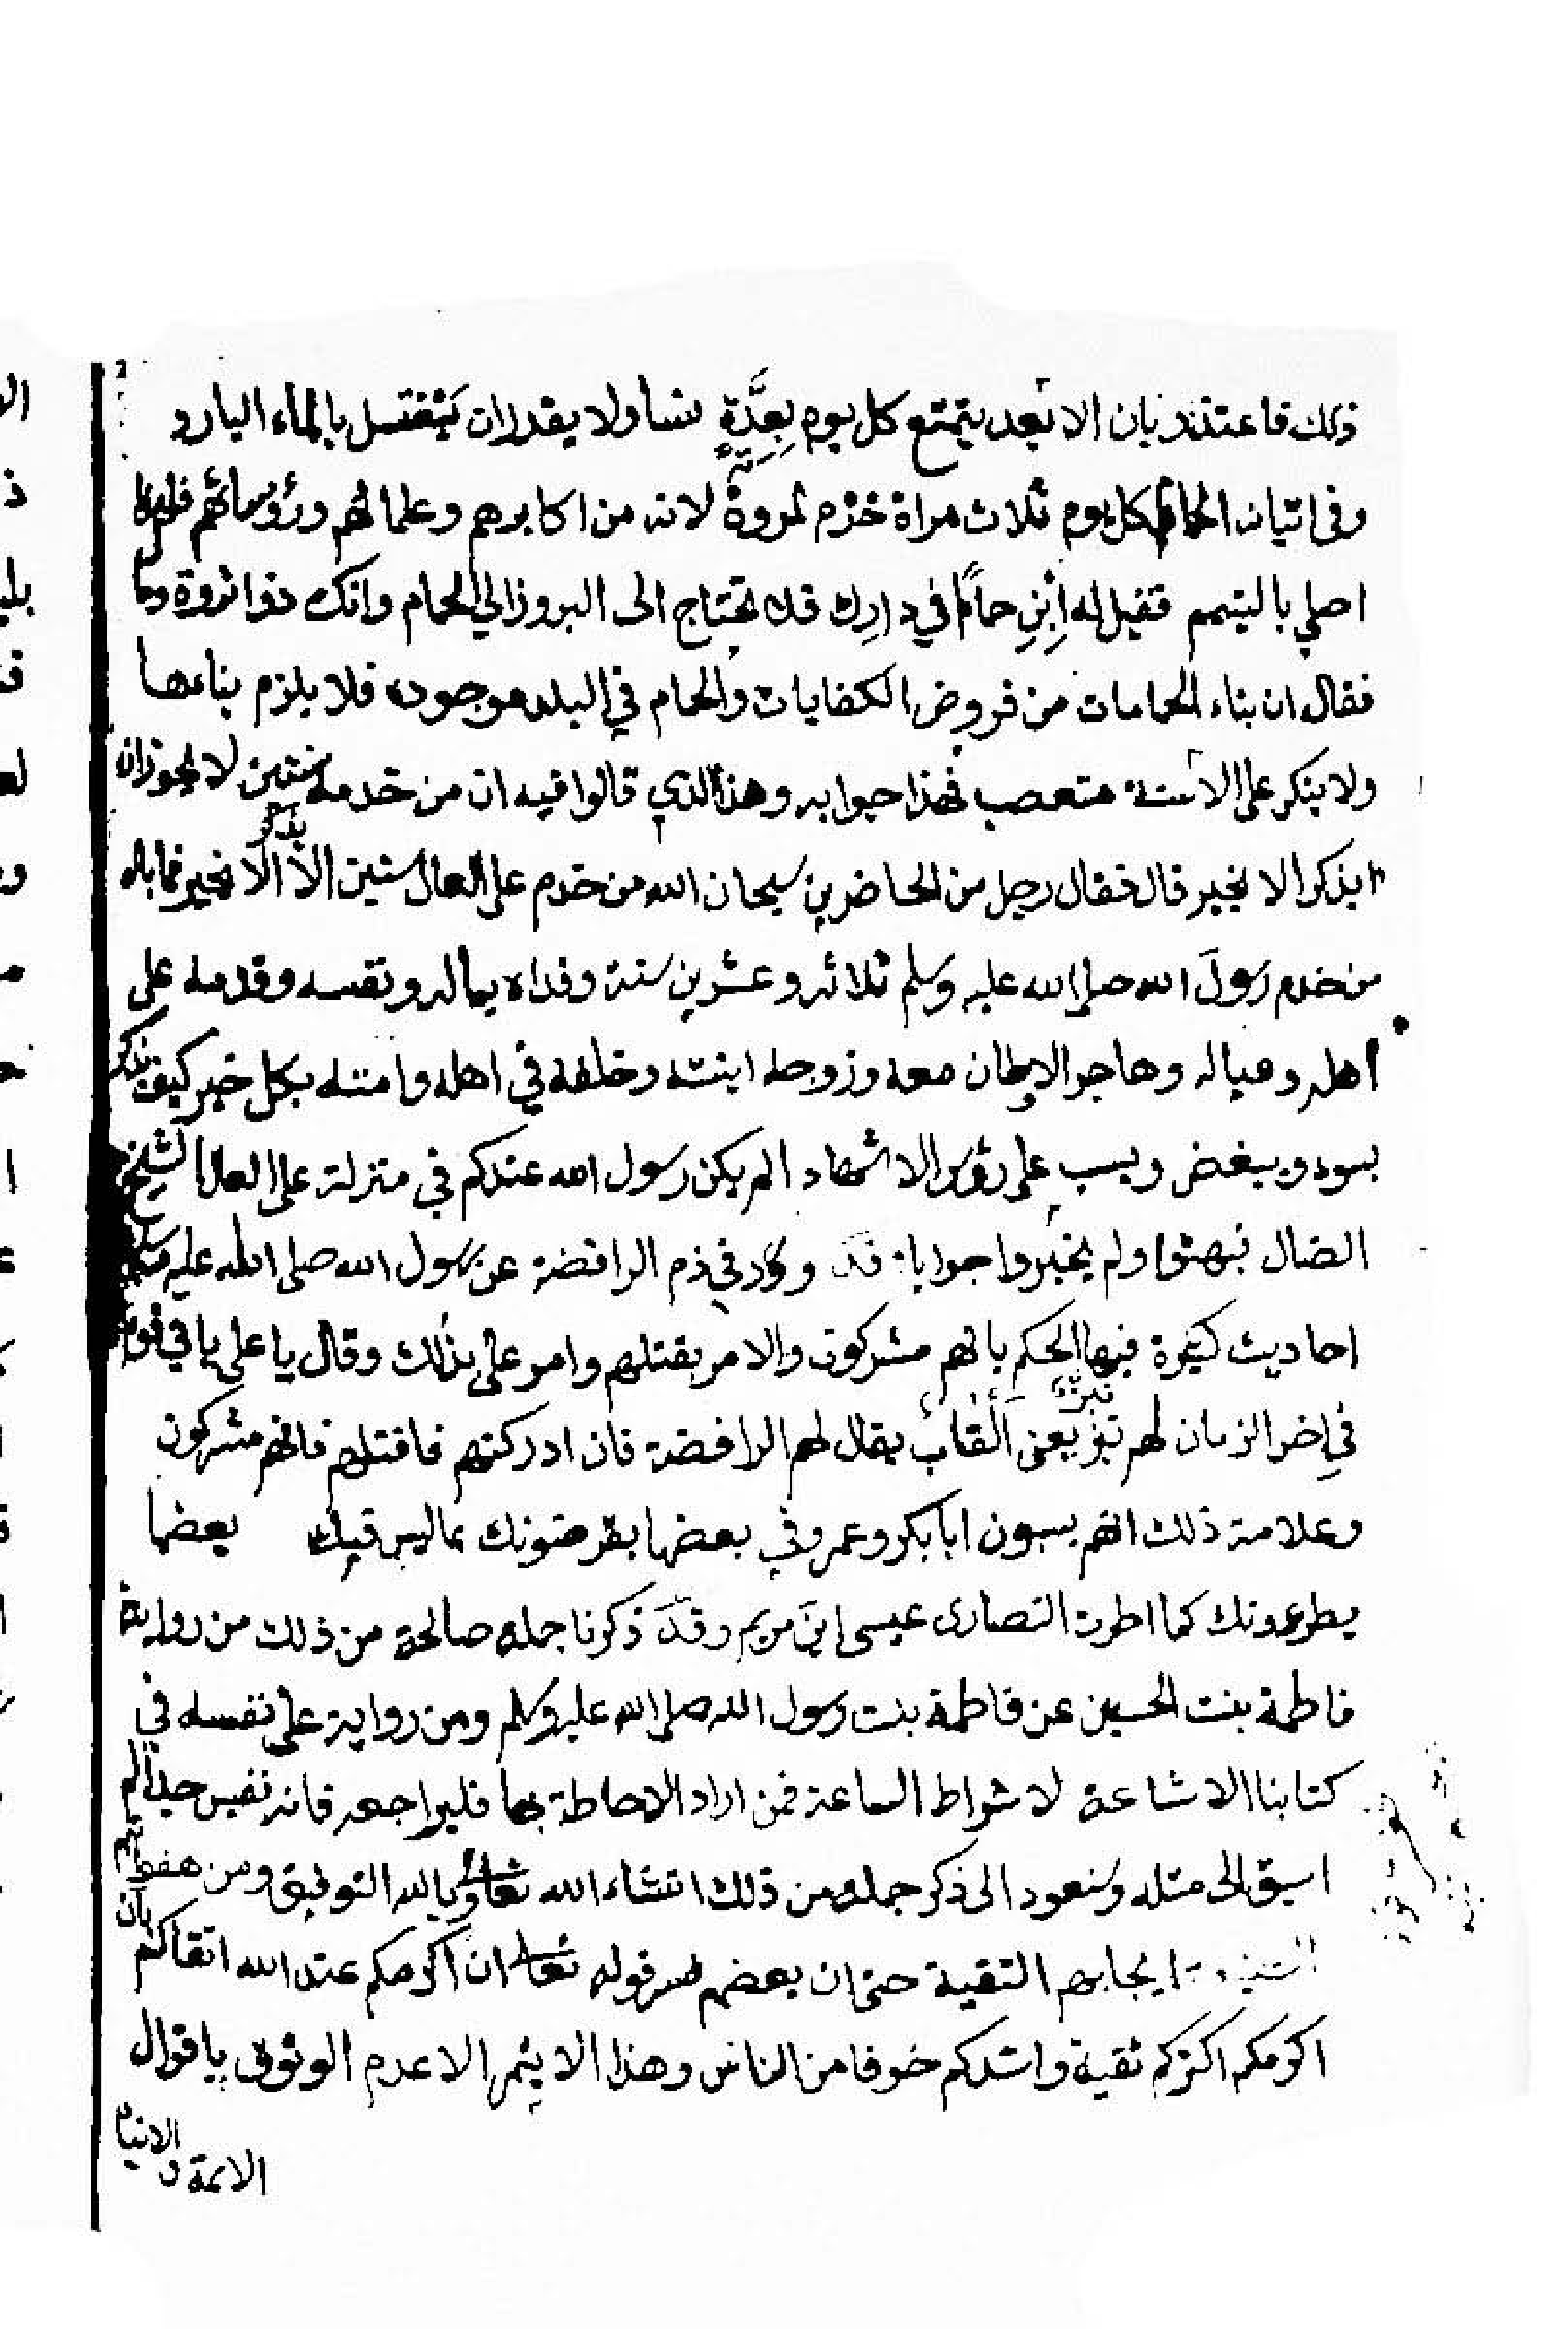 ذلك فاعتذر بان الابعد يتمتع كل يوم بعِدَّةٍ نسا ولا يقدر ان يغتسل بالماء البارد
وفي اتيانه الحمام كل يوم ثلاث مراة خرم لمروة لانه من اكابرهم وعلمائهم ورؤسائهم فلهذا
اصلي بالتيمم فقيل له اِبْنِ حمامًا في دارك فلا تحتاج الى البروز الي الحمام وانك ذوا ثروة وما
فقال ان بناء الحمامات من فروض الكفايات والحمام في البلد موجوده فلا يلزم بناءها
ولا ينكر على الا متعصب فهذا جوابه وهذا الذي قالوا فيه ان من خدمه سنتين لا يجوز ان
يذكر الا بخير قال فقال رجل من الحاضرين سبحان الله من خدم على العال سنتين الا يذكر الا بخير فما بال
من خدم رسولَ الله صلى الله عليه وسلم ثلاثه وعشرين سنة وفداه بماله ونفسه وقدمه على
اهله وعياله وهاجر الاوطان معه وزوجه ابنته وخلفه في اهله وامته بكل خير كيف يذكر
بسوء ويبغض ويسب على رؤس الاشهاد الم يكن رسول الله عندكم في منزلة على العال الشيخ
الضال فبهتوا ولم يخبروا جوابا قد ورد في ذم الرافضة عن رسول الله صلى الله عليه وسلم
احاديث كثيرة فيها الحكم بانهم مشركون والامر بقتلهم وامر علي بذلك وقال يا علي ياتي قوم
في اخر الزمان لهم نبز يعني القاب يقال لهم الرافضة فان ادركتهم فاقتلهم فانهم مشركون
وعلامة ذلك انهم يسبون ابا بكر وعمر وفي بعضها يقرضونك بما ليس فيك بعضها
يطرءونك كما اطرت النصارى عيسى ابن مريم وقد ذكرنا جملة صالحة من ذلك من رواية
فاطمة بنت الحسين عن فاطمة بنت رسول الله صلى الله عليه وسلم ومن رواية علي نفسه في
كتابنا الاشاعة لاشراط الساعة فمن اراد الاحاطة بها فليراجعه فانه نفيس جيدا لم
اسبق الى مثله وسنعود الى ذكر جملة من ذلك انشاء الله تعالى وبالله التوفيق ومن هفواتهم
ايجابهم التقية حتى ان بعضهم فسر قوله تعالى ان اكرمكم عند الله اتقاكم بان
اكرمكم اكثركم تقية واشدكم خوفا من الناس وهذا لا يثمر الا عدم الوثوق باقوال
الائمة و الانبياء